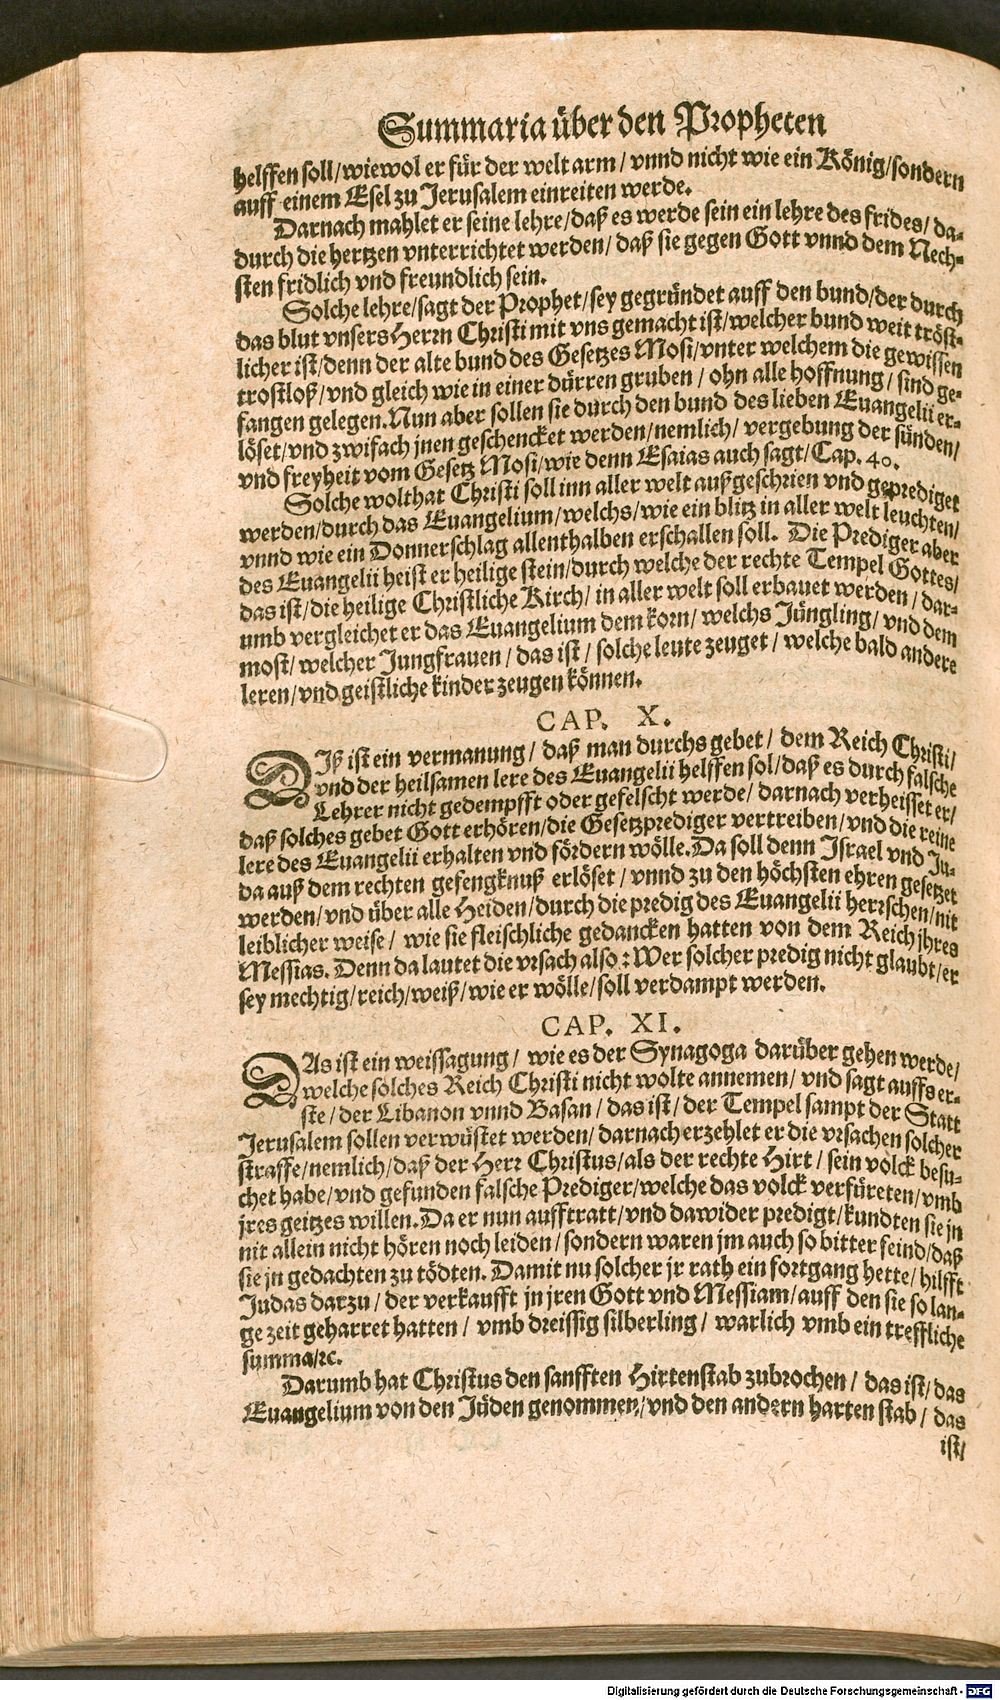 Summaria über den Propheten
helffen soll/wiewol er für der welt arm/ vnnd nicht wie ein König/sondern
auff einem Esel zu Jerusalem einreiten werde.
Darnach mahlet er seine lehre/daß es werde sein ein lehre des frides/ da-
durch die hertzen vnterrichtet werden/ daß sie gegen Gott vnnd dem Nech-
sten fridlich vnd freundlich sein.
Solche lehre/sagt der Prophet/sey gegründet auff den bund/der durch
das blut vnsers Herrn Christi mit vns gemacht ist/welcher bund weit tröst-
licher ist/denn der alte bund des Gesetzes Mosi/vnter welchem die gewissen
trostloß/vnd gleich wie in einer dürren gruben/ ohn alle hoffnung/ sind ge-
fangen gelegen.Nun aber sollen sie durch den bund des lieben Euangelii er-
löset/vnd zwifach jnen geschencket werden/nemlich/ vergebung der sünden/
vnd freyheit vom Gesetz Mosi/wie denn Esaias auch sagt/Cap. 40.
Solche wolthat Christi soll inn aller welt außgeschrien vnd geprediget
werden/durch das Euangelium/welchs/wie ein blitz in aller welt leuchten/
vnnd wie ein Donnerschlag allenthalben erschallen soll. Die Prediger aber
des Euangelii heist er heilige stein/durch welche der rechte Tempel Gottes/
das ist/die heilige Christliche Kirch/ in aller welt soll erbauet werden/ dar-
umb vergleichet er das Euangelium dem korn/ welchs Jüngling/ vnd dem
most/ welcher Jungfrauen/ das ist/ solche leute zeuget/ welche bald andere
leren/vnd geistliche kinder zeugen können.
CAP. X.
DJß ist ein vermanung/ daß man durchs gebet/ dem Reich Christi/
vnd der heilsamen lere des Euangelii helffen sol/daß es durch falsche
Lehrer nicht gedempfft oder gefelscht werde/ darnach verheisset er/
daß solches gebet Gott erhören/die Gesetzprediger vertreiben/vnd die reine
lere des Euangelii erhalten vnd fördern wölle.Da soll denn Israel vnd Ju-
da auß dem rechten gefengknuß erlöset/ vnnd zu den höchsten ehren gesetzet
werden/vnd über alle Heiden/durch die predig des Euangelii herrschen/nit
leiblicher weise/ wie sie fleischliche gedancken hatten von dem Reich jhres
Messias. Denn da lautet die vrsach also: Wer solcher predig nicht glaubt/er
sey mechtig/reich/weiß/wie er wölle/soll verdampt werden.
CAP. XI.
DAs ist ein weissagung/ wie es der Synagoga darüber gehen werde/
welche solches Reich Christi nicht wolte annemen/ vnd sagt auffs er-
ste/ der Libanon vnnd Basan/ das ist/ der Tempel sampt der Statt
Jerusalem sollen verwüstet werden/ darnach erzehlet er die vrsachen solcher
straffe/nemlich/daß der Herr Christus/als der rechte Hirt/ sein volck besu-
chet habe/vnd gefunden falsche Prediger/welche das volck verfüreten/vmb
jres geitzes willen.Da er nun aufftratt/vnd dawider predigt/kundten sie jn
nit allein nicht hören noch leiden/sondern waren jm auch so bitter feind/daß
sie jn gedachten zu tödten. Damit nu solcher jr rath ein fortgang hette/ hilfft
Judas darzu/ der verkaufft jn jren Gott vnd Messiam/auff den sie so lan-
ge zeit geharret hatten/ vmb dreissig silberling/ warlich vmb ein treffliche
summa/ꝛc.
Darumb hat Christus den sanfften Hirtenstab zubrochen/ das ist/das
Euangelium von den Jüden genommen/vnd den andern harten stab/ das
ist/
Digitalisierung gefördert durch die Deutsche Forschungsgemeinschaft - DFG